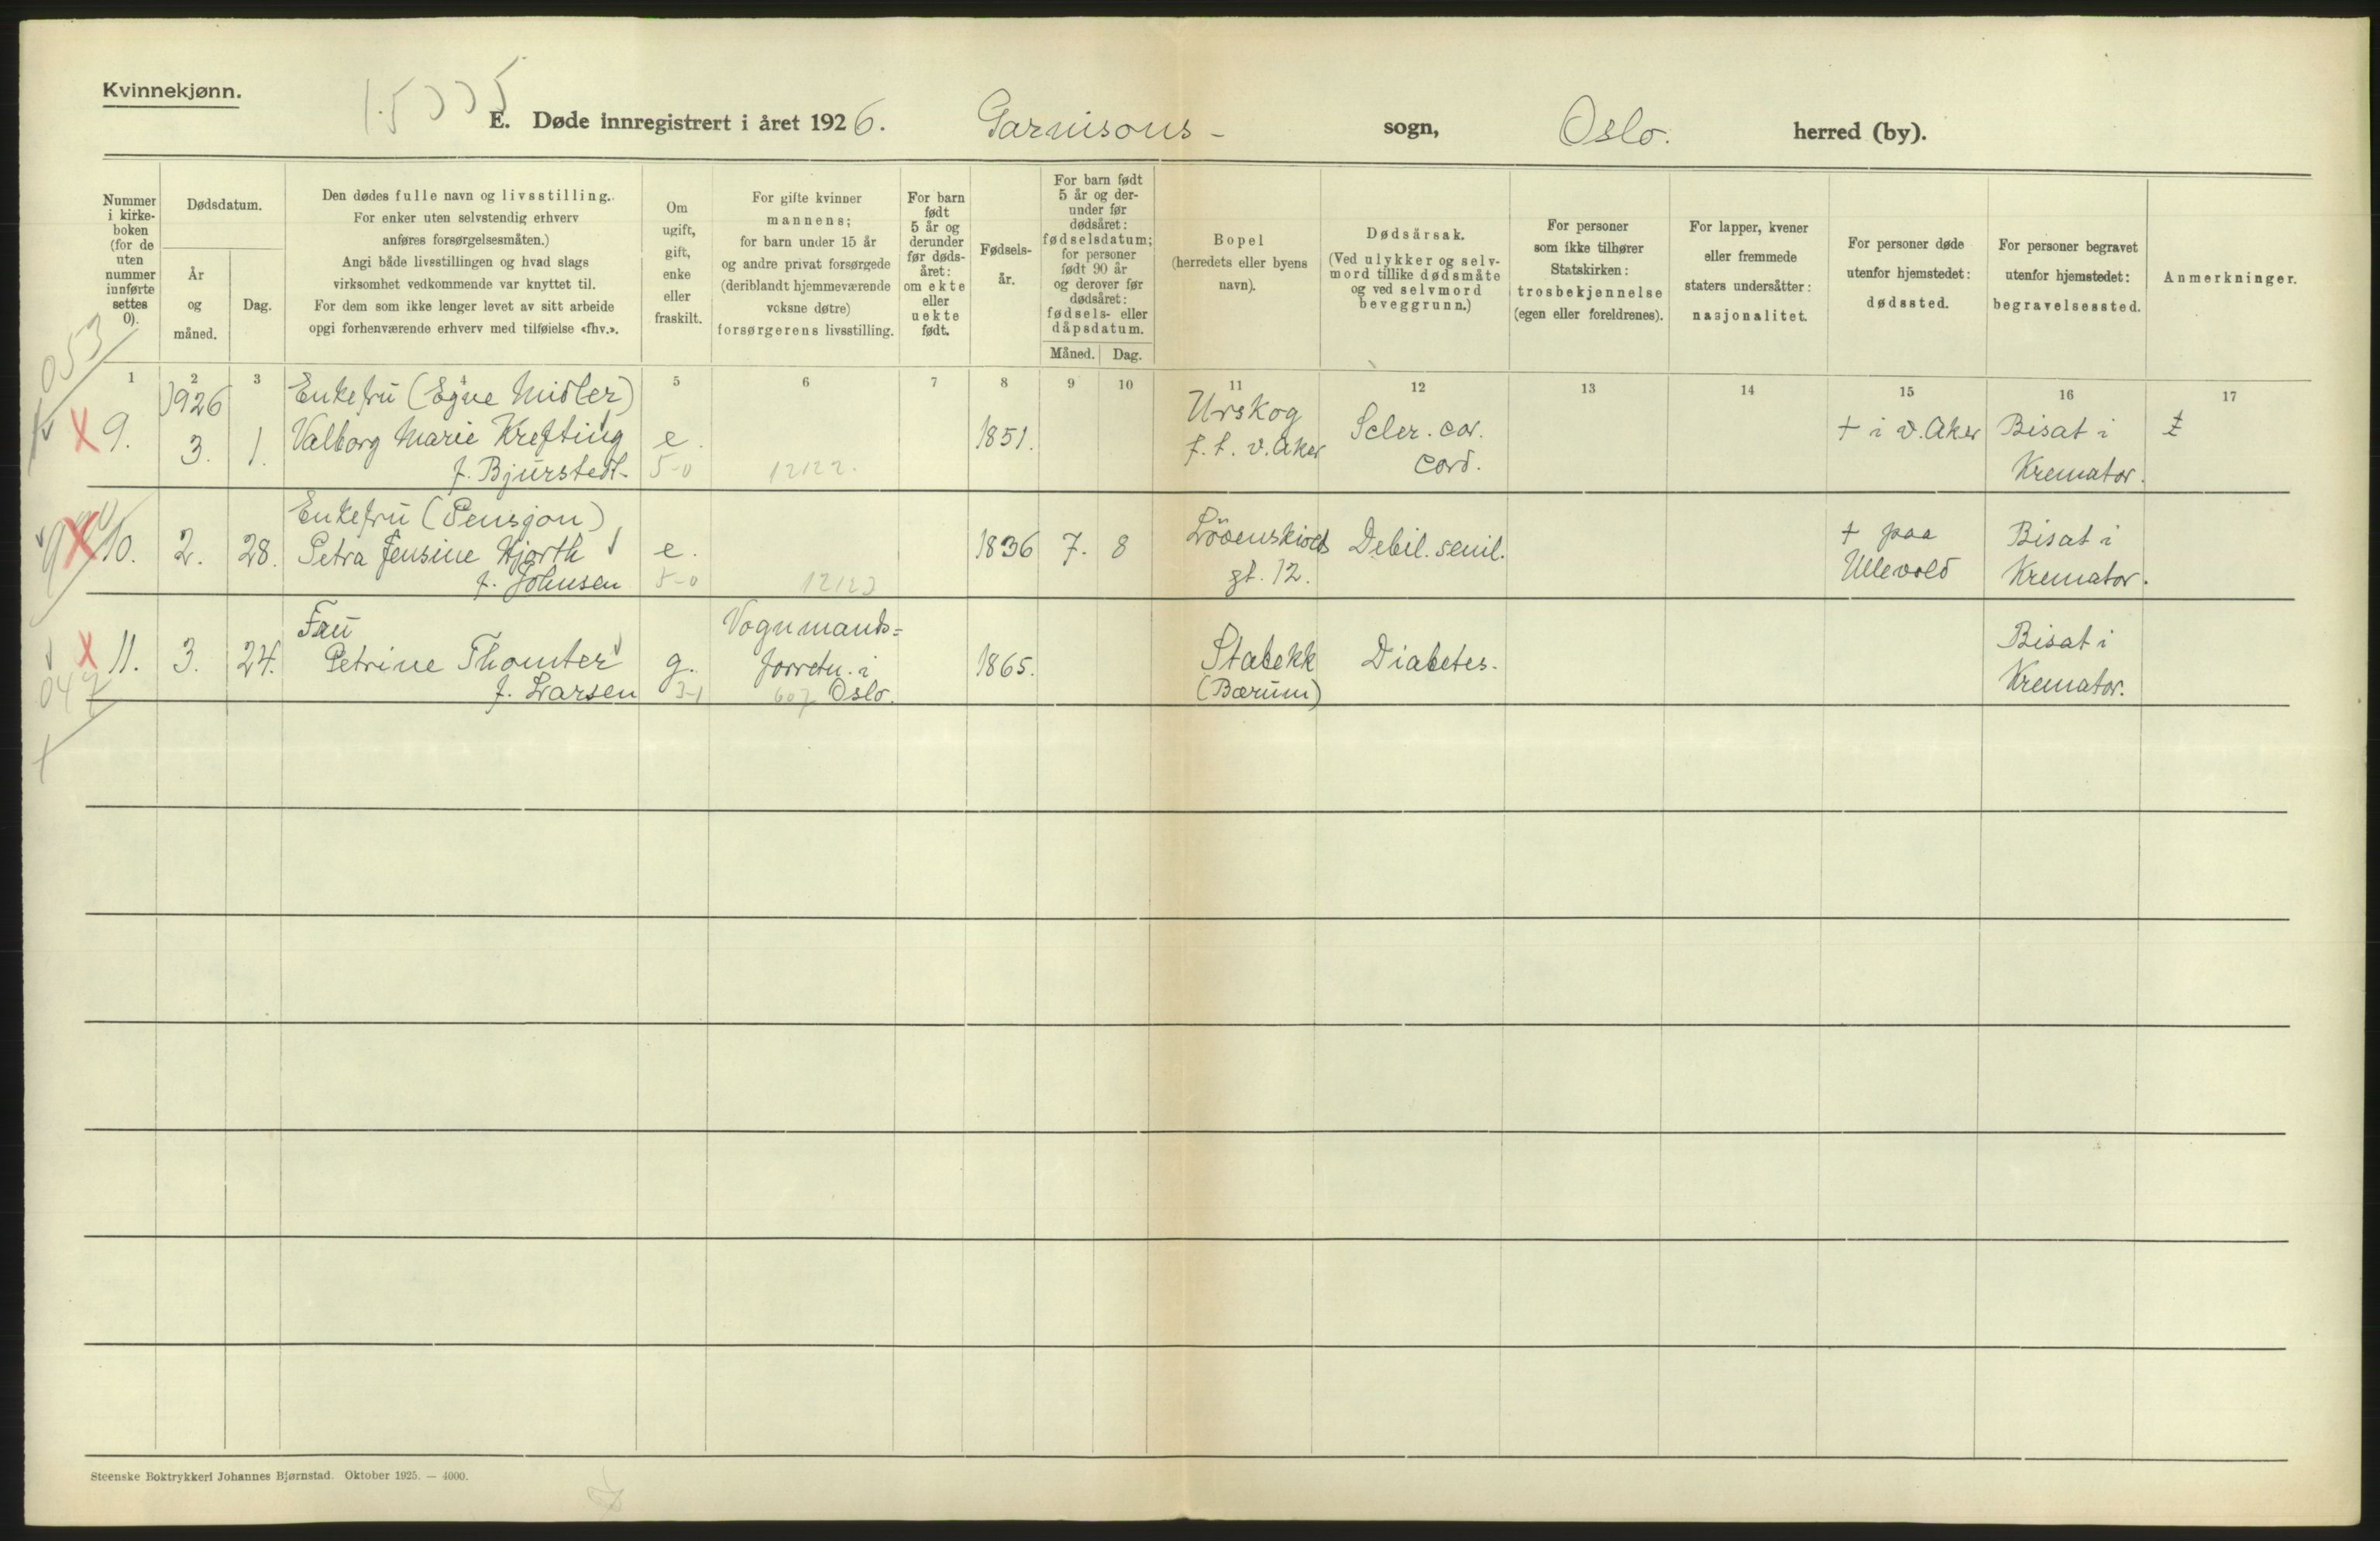 Kvinnekjønn.
E. Døde innregistrert i året 1926. Garnisons- sogn, Oslo. herred (by).
Nummer
i kirke-
boken
(for de
uten
nummer
innførte
settes
0).
Dødsdatum.
År
og
måned.
Dag.
Den dødes fulle navn og livsstilling.
For enker uten selvstendig erhverv
anføres forsørgelsesmåten.)
Angi både livsstillingen og hvad slags
virksomhet vedkommende var knyttet til.
For dem som ikke lenger levet av sitt arbeide
opgi forhenværende erhverv med tilføielse «fhv.».
Om
ugift,
gift,
enke
eller
fraskilt.
For gifte kvinner
mannens;
for barn under 15 år
og andre privat forsørgede
(deriblandt hjemmeværende
voksne døtre)
forsørgerens livsstilling.
For barn
født
5 år og
derunder
før døds-
året:
om ekte
eller
uekte
født.
Fødsels-
år.
For barn født
5 år og der-
under før
dødsåret:
fødselsdatum;
for personer
født 90 år
og derover før
dødsåret:
fødsels- eller
dåpsdatum.
Måned. Dag.
Bopel
(herredets eller byens
navn).
Dødsårsak.
(Ved ulykker og selv-
mord tillike dødsmåte
og ved selvmord
beveggrunn.)
For personer
som ikke tilhører
Statskirken:
trosbekjennelse
(egen eller foreldrenes).
For lapper, kvener
eller fremmede
staters undersåtter:
nasjonalitet.
For personer døde
utenfor hjemstedet:
dødssted.
For personer begravet
utenfor hjemstedet:
begravelsessted.
Anmerkninger.
1 2 3 4 5 6 7 8 9 10 11 12 13 14 15 16 17
053
1926 Enkefru (Egne Midler) Urskog
X 9. 3. 1. Valborg Marie Krefting e. 1851. f. t. v. Aker Scler. cor. + i v. Aker Bisat i
f. Bjurstedt 5-0 12122. cord. Kremator.
Enkefru (Pensjon)
X 10. 2. 28. Petra Jensine Hjorth e. 1836 7. 8 Lövenskiolds Debil. senil. + paa Bisat i
f. Johnsen 5-0 gt. 12. Ullevold Kremator.
Fru Vognmands= Bisat i
X 11. 3. 24. Petrine Thomter g. forretn. i 1865. Stabekk Diabetes. Kremator.
047 f. Larsen 3-1 607 Oslo. (Bærum)
Steenske Boktrykkeri Johannes Bjørnstad. Oktober 1925. — 4000.